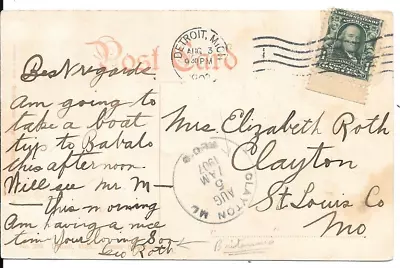 Post Card
DETROIT, MICH.
AUG 3
9 PM
Best regards.
Am going to
take a boat
trip to Bablo
this afternoon
Will see Mr M—
— this morning
Am having a nice
time Your loving Son
Geo Roth
Mrs. Elizabeth Roth
Clayton
St Louis Co
Mo.
CLAYTON MO.
AUG
5
AM
1907
REC'D